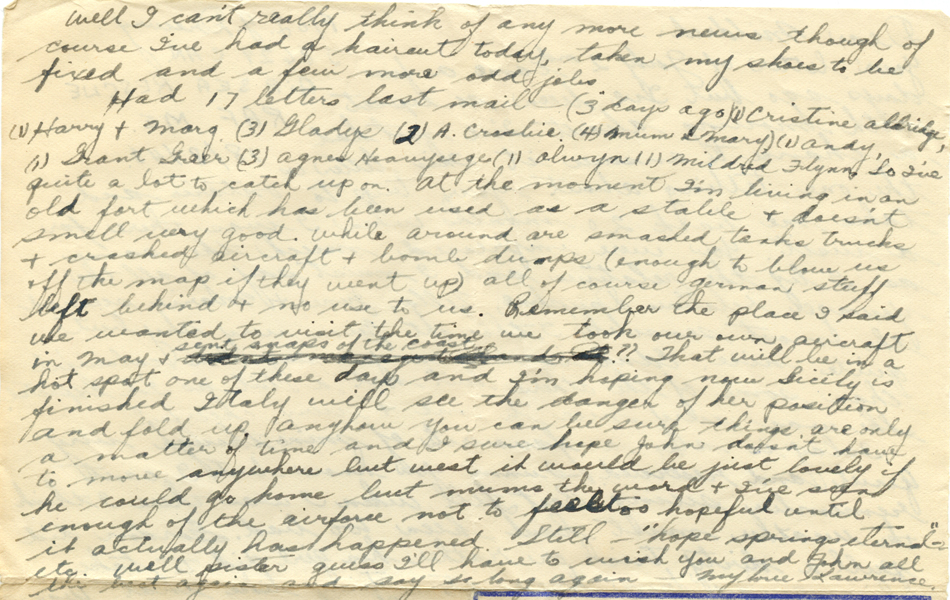 Well I can't really think of any more news though of
course I've had a haircut today, taken my shoes to be
fixed and a few more odd jobs
Had 17 letters last mail - (3 days ago) (1) Cristine Aldridge,
(1) Harry + Marg (3) Gladys (2) A. Crosbie (4) Mum & Mary) (1) Andy,
(1) Grant Greer (3) Agnes Heavysege (1) Alwyn (1) Mildred Flynn, So I've
quite a lot to catch up on. At the moment I'm living in an
old fort which has been used as a stable + doesn't
smell very good. While around are smashed tanks trucks
+ crashed aircraft + bomb dumps (enough to blow us
off the map if they went up) all of course german stuff
left behind + no use to us. Remember the place I said
we wanted to visit the time we took our own aircraft
in May + sent snaps of the coast ?? That will be in a
hot spot one of these days and I'm hoping now Sicily is
finished Italy will see the danger of her position
and fold up, anyhow you can be sure things are only
a matter of time and I sure hope John doesn't have
to move anywhere but west it would be just lovely if
he could go home but mums the word + I've seen
enough of the airforce not to feel too hopeful until
it actually has happened. Still - "hope springs eternal -"
etc. Well sister guess I'll have to wish you and John all
the best again and say so long again My love Lawrence.